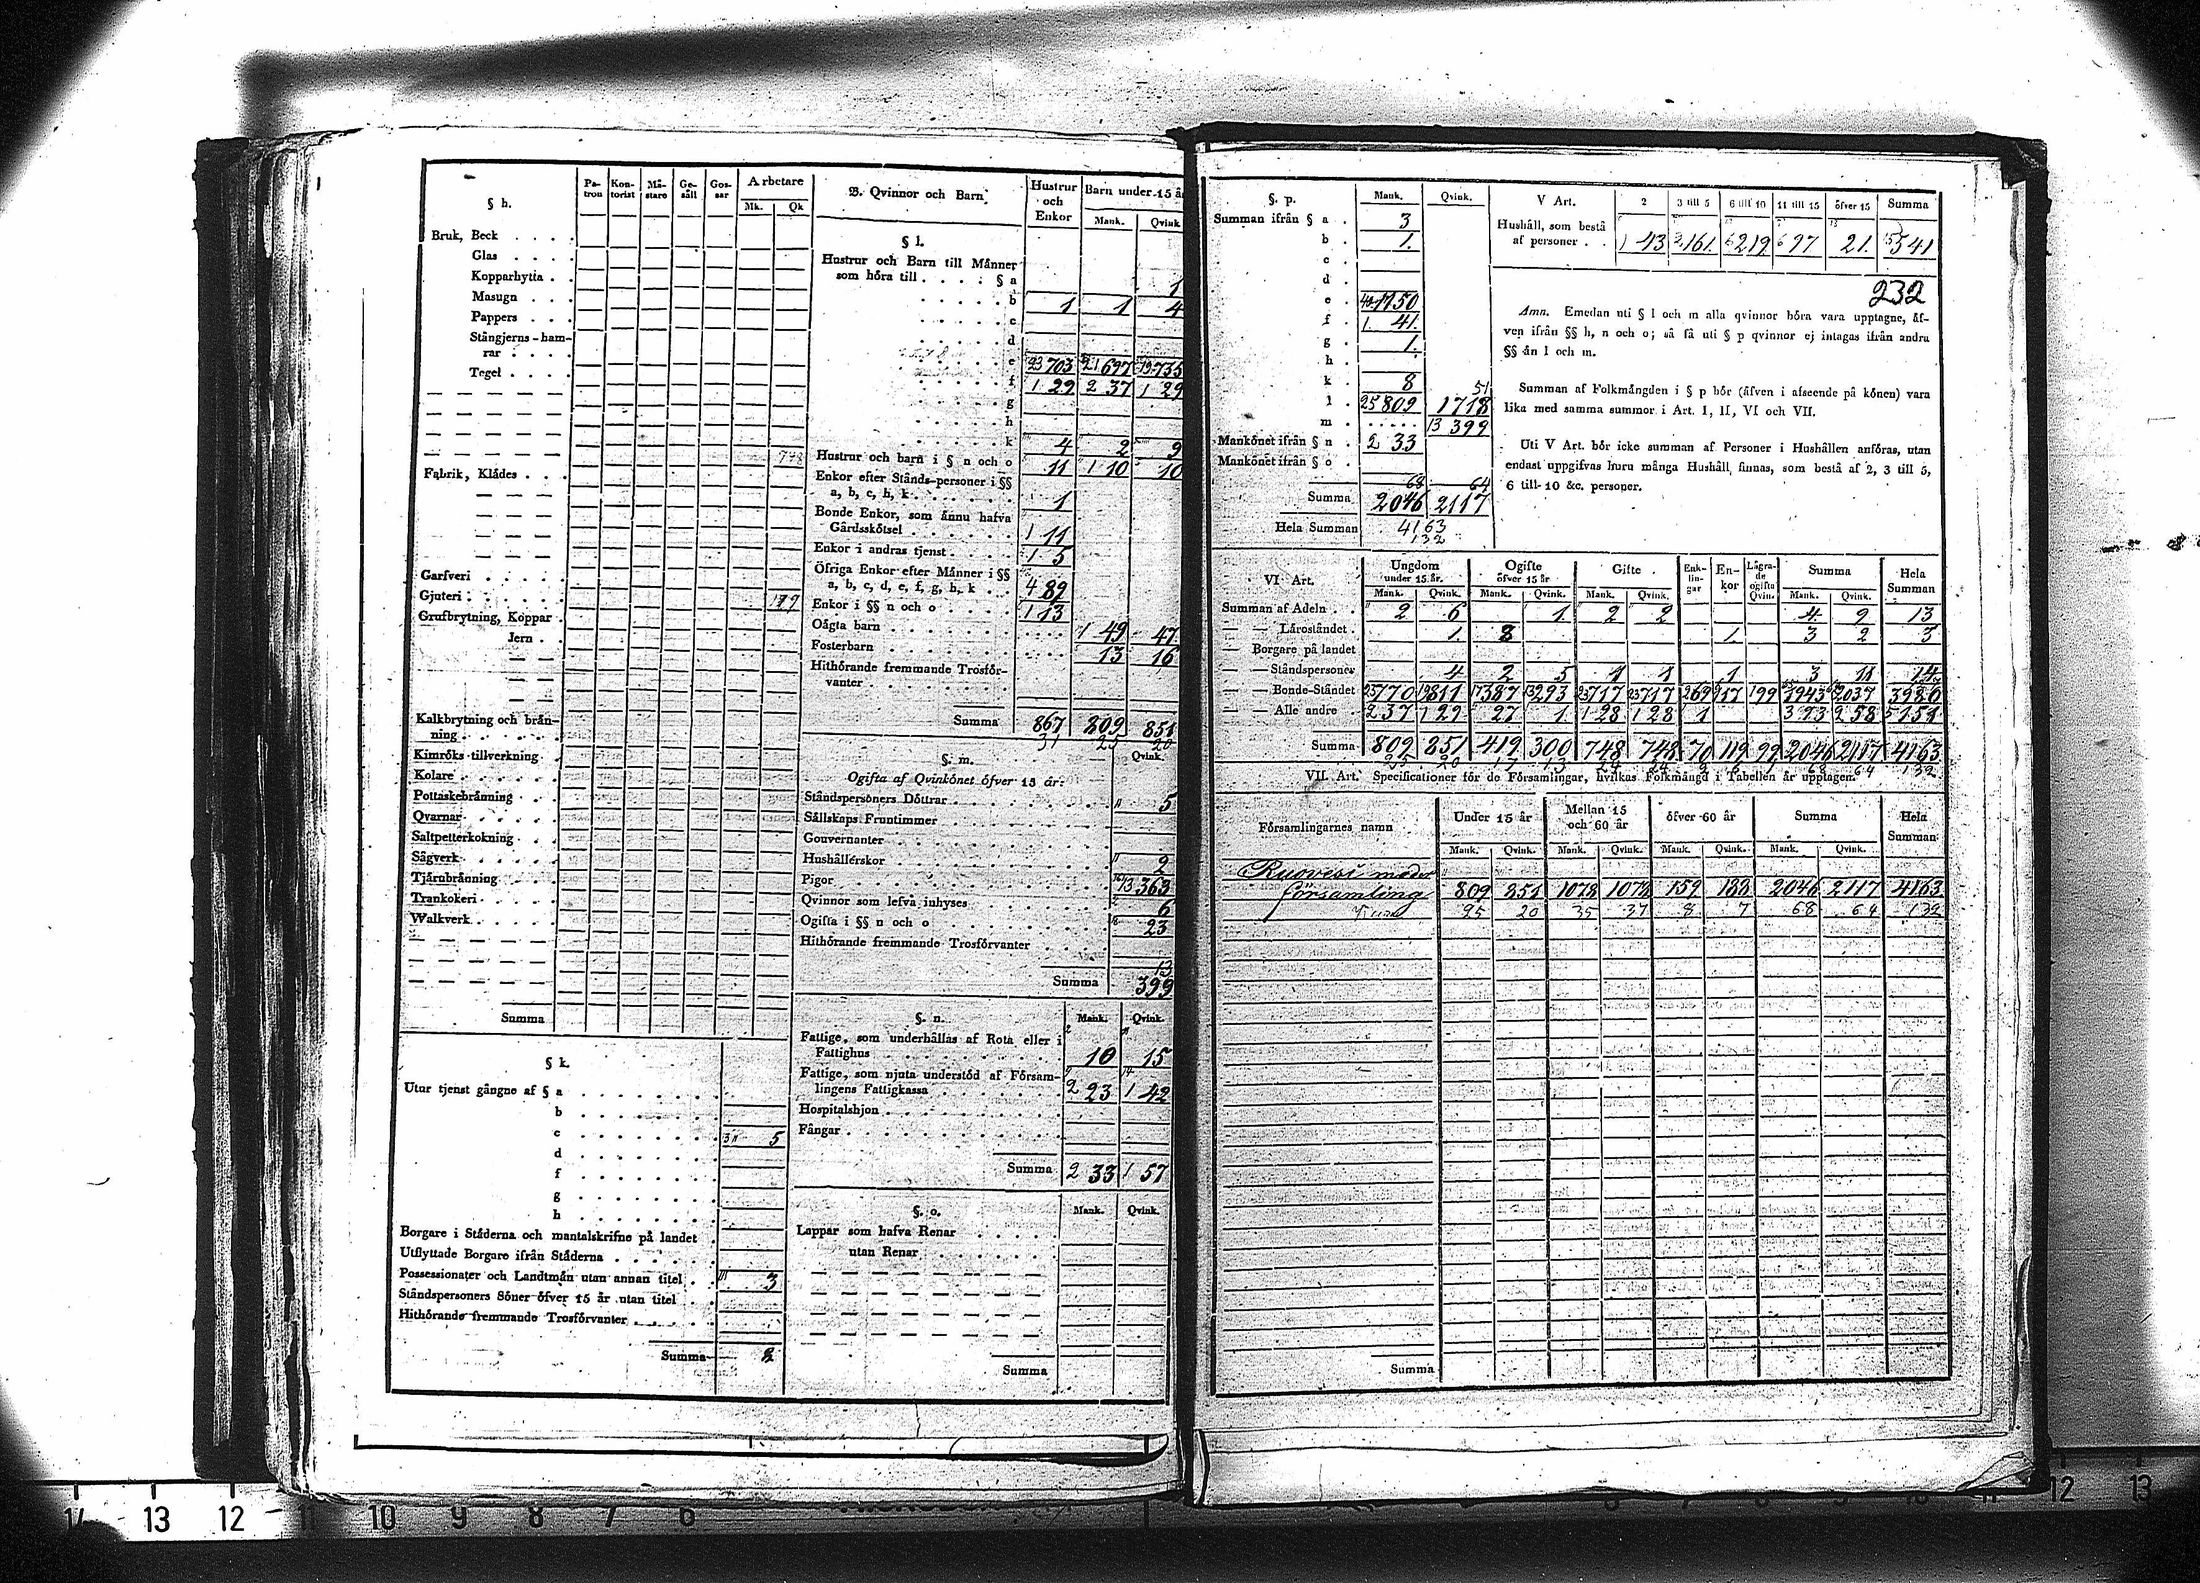 § h.
Pa-tron Kon-torist Mä-stare Ge-säll Gos-sar Arbetare
Mk. Qk
Bruk, Beck
Glas
Kopparhytta
Masugn
Pappers
Stångjerns-ham-
rar
Tegel
Fabrik, Klädes
Garfveri
Gjuteri
Grufbrytning, Koppar
Jern
Kalkbrytning och brån-
ning
Kimröks-tillverkning
Kolare
Pottaskebrånning
Qvarnar
Saltpetterkokning
Sågverk
Tjårnbrånning
Trankokeri
Walkverk
Summa
§ k.
Utur tjenst gångne af § a
b
c 5
d
f
g
h
Borgare i Ståderna och mantalskrifne på landet
Utflyttade Borgare ifrån Ståderna
Possessionater och Landtmån utan annan titel 3
Ståndspersoners Söner öfver 15 år utan titel
Hithörande fremmande Trosförvanter
Summa 8
B. Qvinnor och Barn Hustrur och Enkor Barn under 15 år
Mank. Qvink.
§ l.
Hustrur och Barn till Männer
som höra till § a 1
b 1 1 4
c
d
e 703 697 735
f 29 37 29
g
h
k 4 2 9
Hustrur och barn i § n och o 11 10 10
Enkor efter Stånds-personer i §§
a, b, c, h, k 1
Bonde Enkor, som ännu hafva
Gårdsskötsel 11
Enkor i andras tjenst 5
Öfriga Enkor efter Männer i §§
a, b, c, d, e, f, g, h, k 89
Enkor i §§ n och o 13
Oägta barn 49 47
Fosterbarn 13 16
Hithörande fremmande Trosför-
vanter
Summa 867 809 851
31 25 20
§. m. Qvink.
Ogifta af Qvinkönet öfver 15 år:
Ståndspersoners Döttrar 5
Sällskaps Fruntimmer
Gouvernanter
Hushållerskor 2
Pigor 363
Qvinnor som lefva inhyses 6
Ogifta i §§ n och o 23
Hithörande fremmande Trosförvanter
13
Summa 399
§. n. Mank. Qvink.
Fattige, som underhållas af Rota eller i
Fattighus 10 15
Fattige, som njuta understöd af Försam-
lingens Fattigkassa 2 23 1 42
Hospitalshjon
Fångar
Summa 2 33 1 57
§. o. Mank. Qvink.
Lappar som hafva Renar
utan Renar
Summa
§. p. Mank. Qvink.
Summan ifrån § a 3
b 1
c
d
e 1150
f 1 41
g 1
h
k 8 51
l 25 809 1718
m 13 399
Mankönet ifrån § n 2 33
Mankönet ifrån § o
68 64
Summa 2046 2117
Hela Summan 4163
132
V Art. 2 3 till 5 6 till 10 11 till 15 öfver 15 Summa
Hushåll, som bestå
af personer 1 43 161 219 97 21 541
232
Anm. Emedan uti § l och m alla qvinnor böra vara upptagne, äf-
ven ifrån §§ h, n och o; så få uti § p qvinnor ej intagas ifrån andra
§§ än l och m.
Summan af Folkmängden i § p bör (äfven i afseende på könen) vara
lika med samma summor i Art. I, II, VI och VII.
Uti V Art. bör icke summan af Personer i Hushållen anföras, utan
endast uppgifvas huru många Hushåll finnas, som bestå af 2, 3 till 5,
6 till 10 &c. personer.
VI Art. Ungdom under 15 år. Ogifte öfver 15 år Gifte Enk-lin-gar En-kor Lägra-de ogifta Qvin. Summa Hela Summan
Mank. Qvink. Mank. Qvink. Mank. Qvink. Mank. Qvink.
Summan af Adeln 2 6 1 2 2 4 9 13
Läroståndet 1 1 3 2 5
Borgare på landet
Ståndspersoner 4 2 5 1 1 1 3 11 14
Bonde-Ståndet 770 811 387 293 717 717 69 117 99 1943 2037 3980
Alle andre 2 37 1 29 27 1 1 28 1 28 1 93 58 151
Summa 809 851 419 300 748 748 70 119 99 2046 2117 4163
VII. Art. Specificationer för de Församlingar, hvilkas Folkmängd i Tabellen är upptagen.
Församlingarnes namn Under 15 år Mellan 15 och 60 år öfver 60 år Summa Hela Summan
Mank. Qvink. Mank. Qvink. Mank. Qvink. Mank. Qvink.
Ruovesi moder
församling 809 851 1078 1078 159 188 2046 2117 4163
25 20 35 37 8 7 68 64 132
Summa
14 13 12 11 10 9 8 7 6
6 7 8 9 10 11 12 13